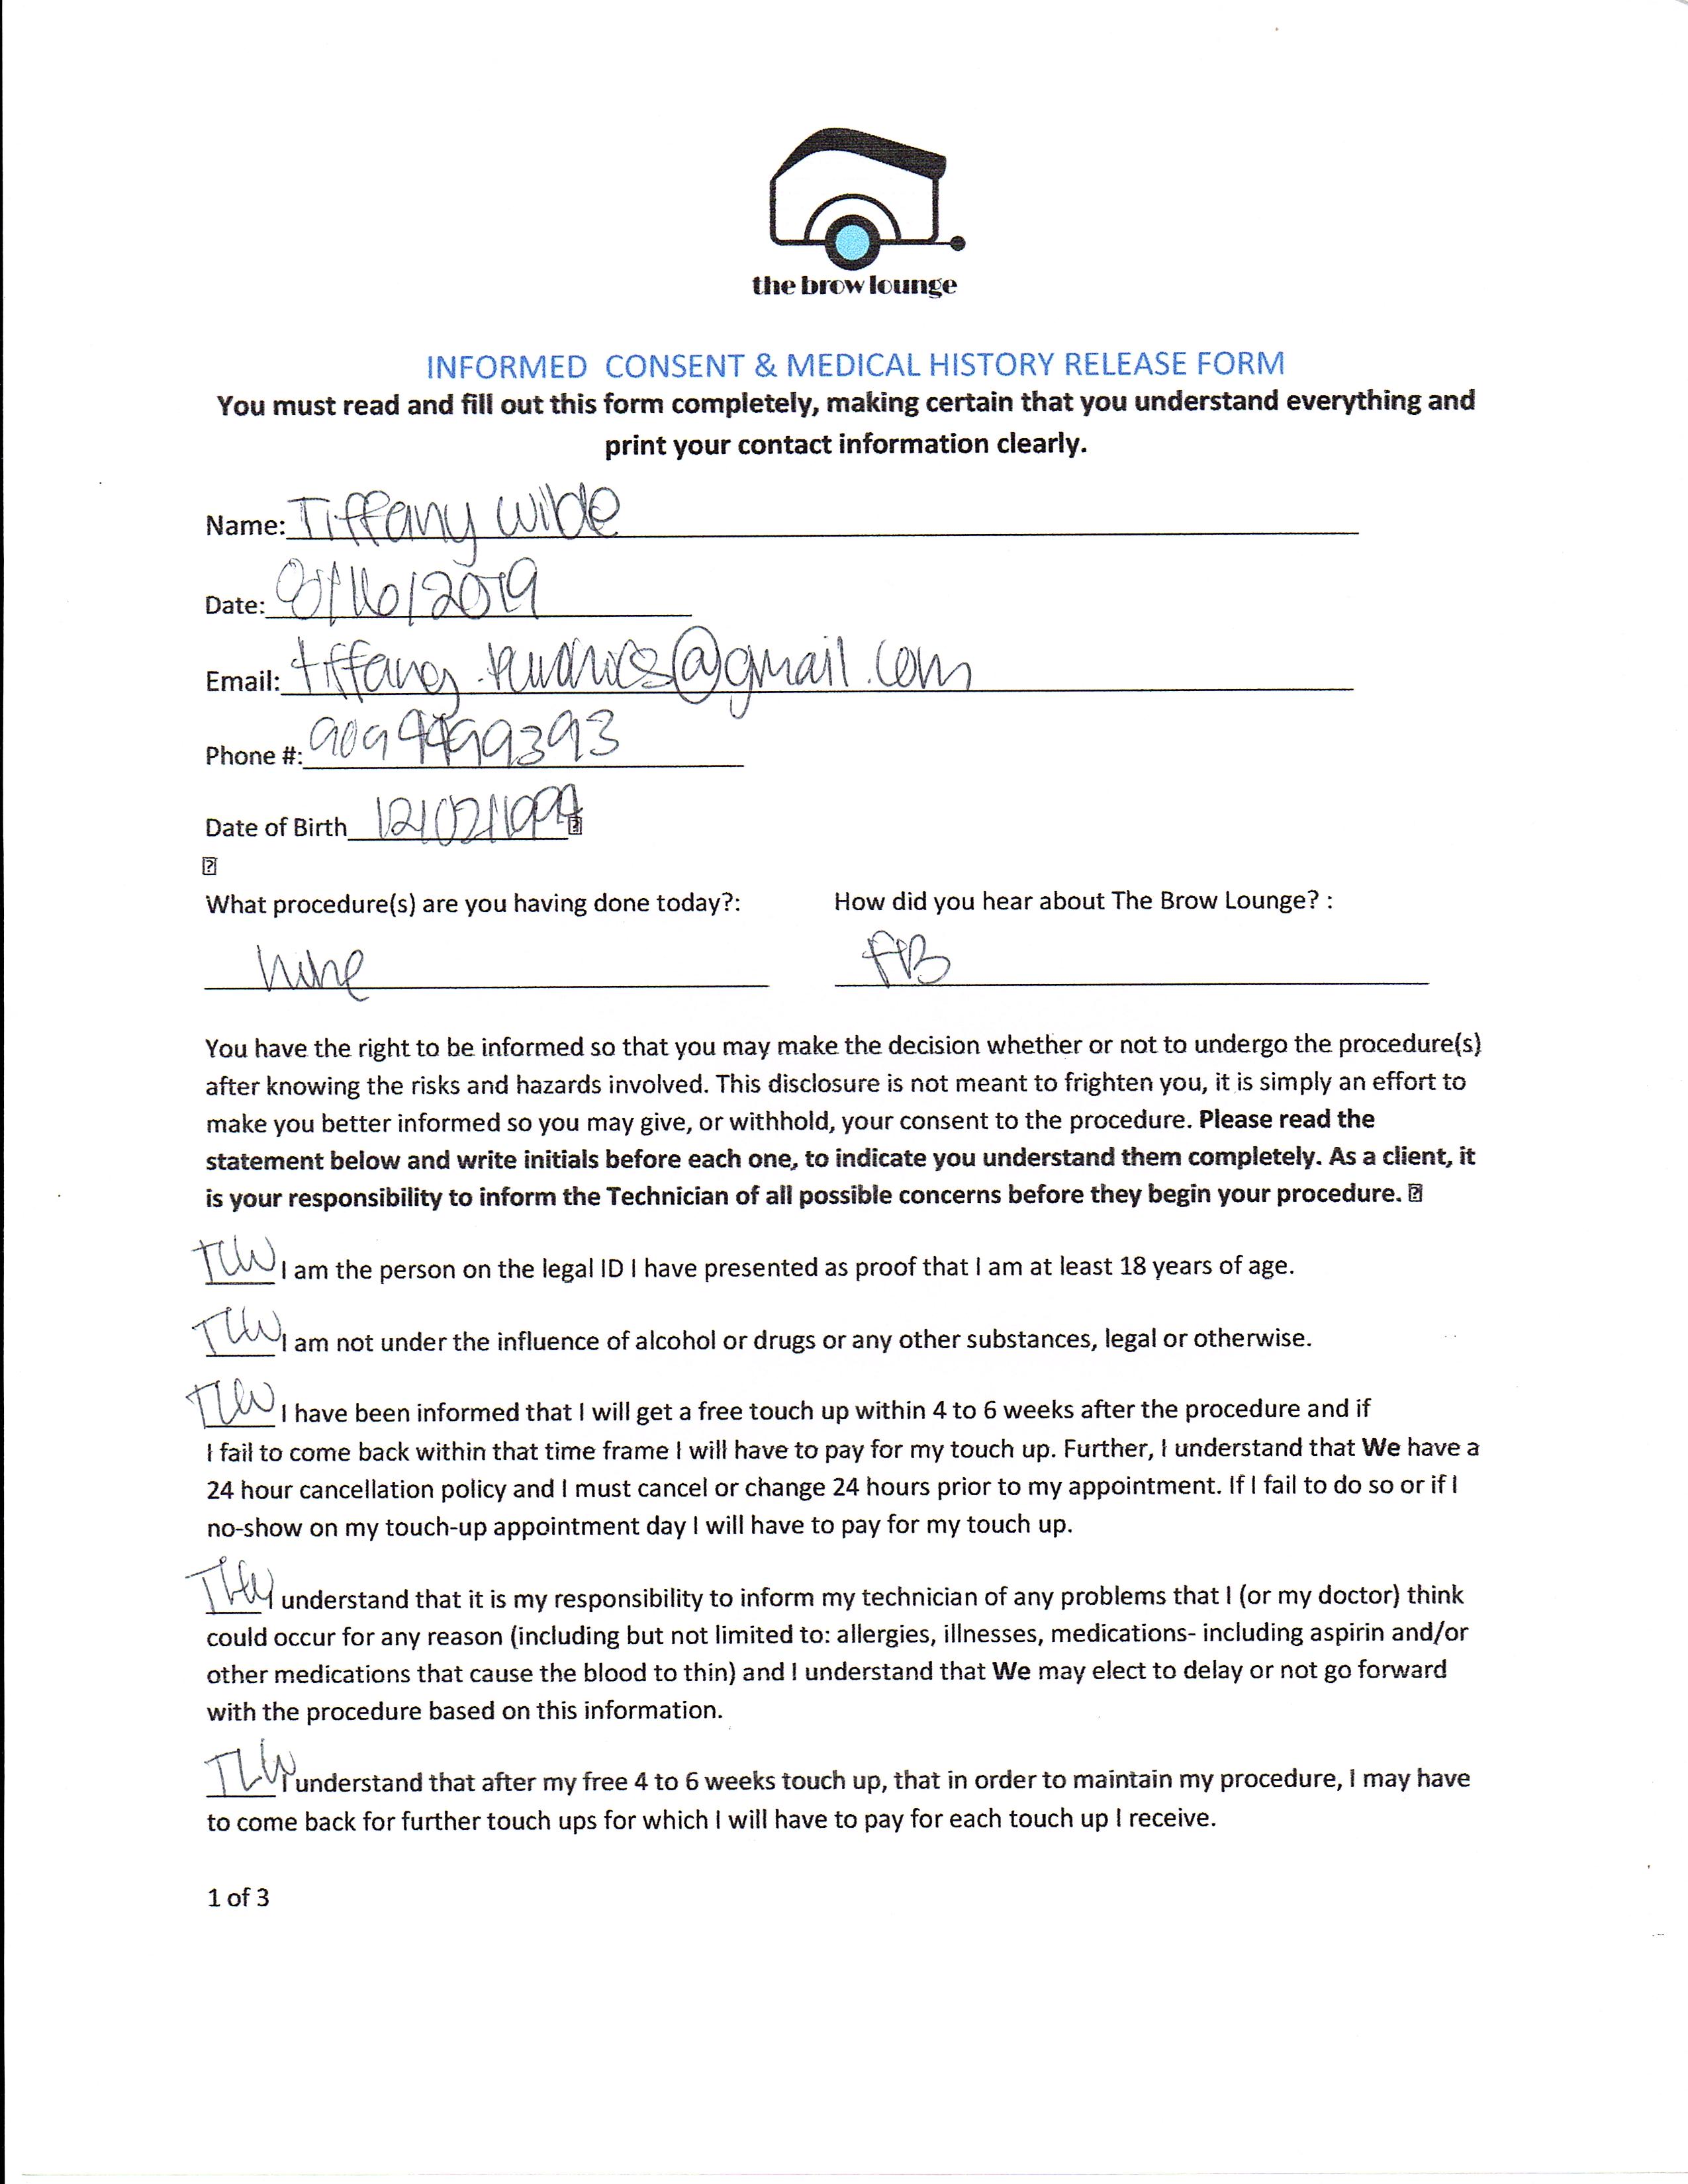 the brow lounge
INFORMED CONSENT & MEDICAL HISTORY RELEASE FORM
You must read and fill out this form completely, making certain that you understand everything and
print your contact information clearly.
Name: Tiffany Wilde
Date: /16/2019
Email: @gmail.com
Phone #: 9094499393
Date of Birth
What procedure(s) are you having done today?: How did you hear about The Brow Lounge? :
FB
You have the right to be informed so that you may make the decision whether or not to undergo the procedure(s)
after knowing the risks and hazards involved. This disclosure is not meant to frighten you, it is simply an effort to
make you better informed so you may give, or withhold, your consent to the procedure. Please read the
statement below and write initials before each one, to indicate you understand them completely. As a client, it
is your responsibility to inform the Technician of all possible concerns before they begin your procedure.
TLW I am the person on the legal ID I have presented as proof that I am at least 18 years of age.
TLW I am not under the influence of alcohol or drugs or any other substances, legal or otherwise.
TLW I have been informed that I will get a free touch up within 4 to 6 weeks after the procedure and if
I fail to come back within that time frame I will have to pay for my touch up. Further, I understand that We have a
24 hour cancellation policy and I must cancel or change 24 hours prior to my appointment. If I fail to do so or if I
no-show on my touch-up appointment day I will have to pay for my touch up.
TLW I understand that it is my responsibility to inform my technician of any problems that I (or my doctor) think
could occur for any reason (including but not limited to: allergies, illnesses, medications- including aspirin and/or
other medications that cause the blood to thin) and I understand that We may elect to delay or not go forward
with the procedure based on this information.
TLW I understand that after my free 4 to 6 weeks touch up, that in order to maintain my procedure, I may have
to come back for further touch ups for which I will have to pay for each touch up I receive.
1 of 3